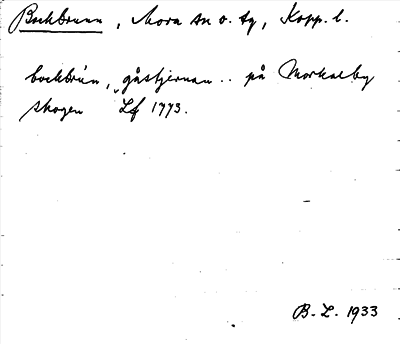 Bockbrunn, Mora sn o. tg, Kopp. l.
bockbrún, gåstjernan.. på Morkarlby
skogen Lf 1773.
B. L. 1933